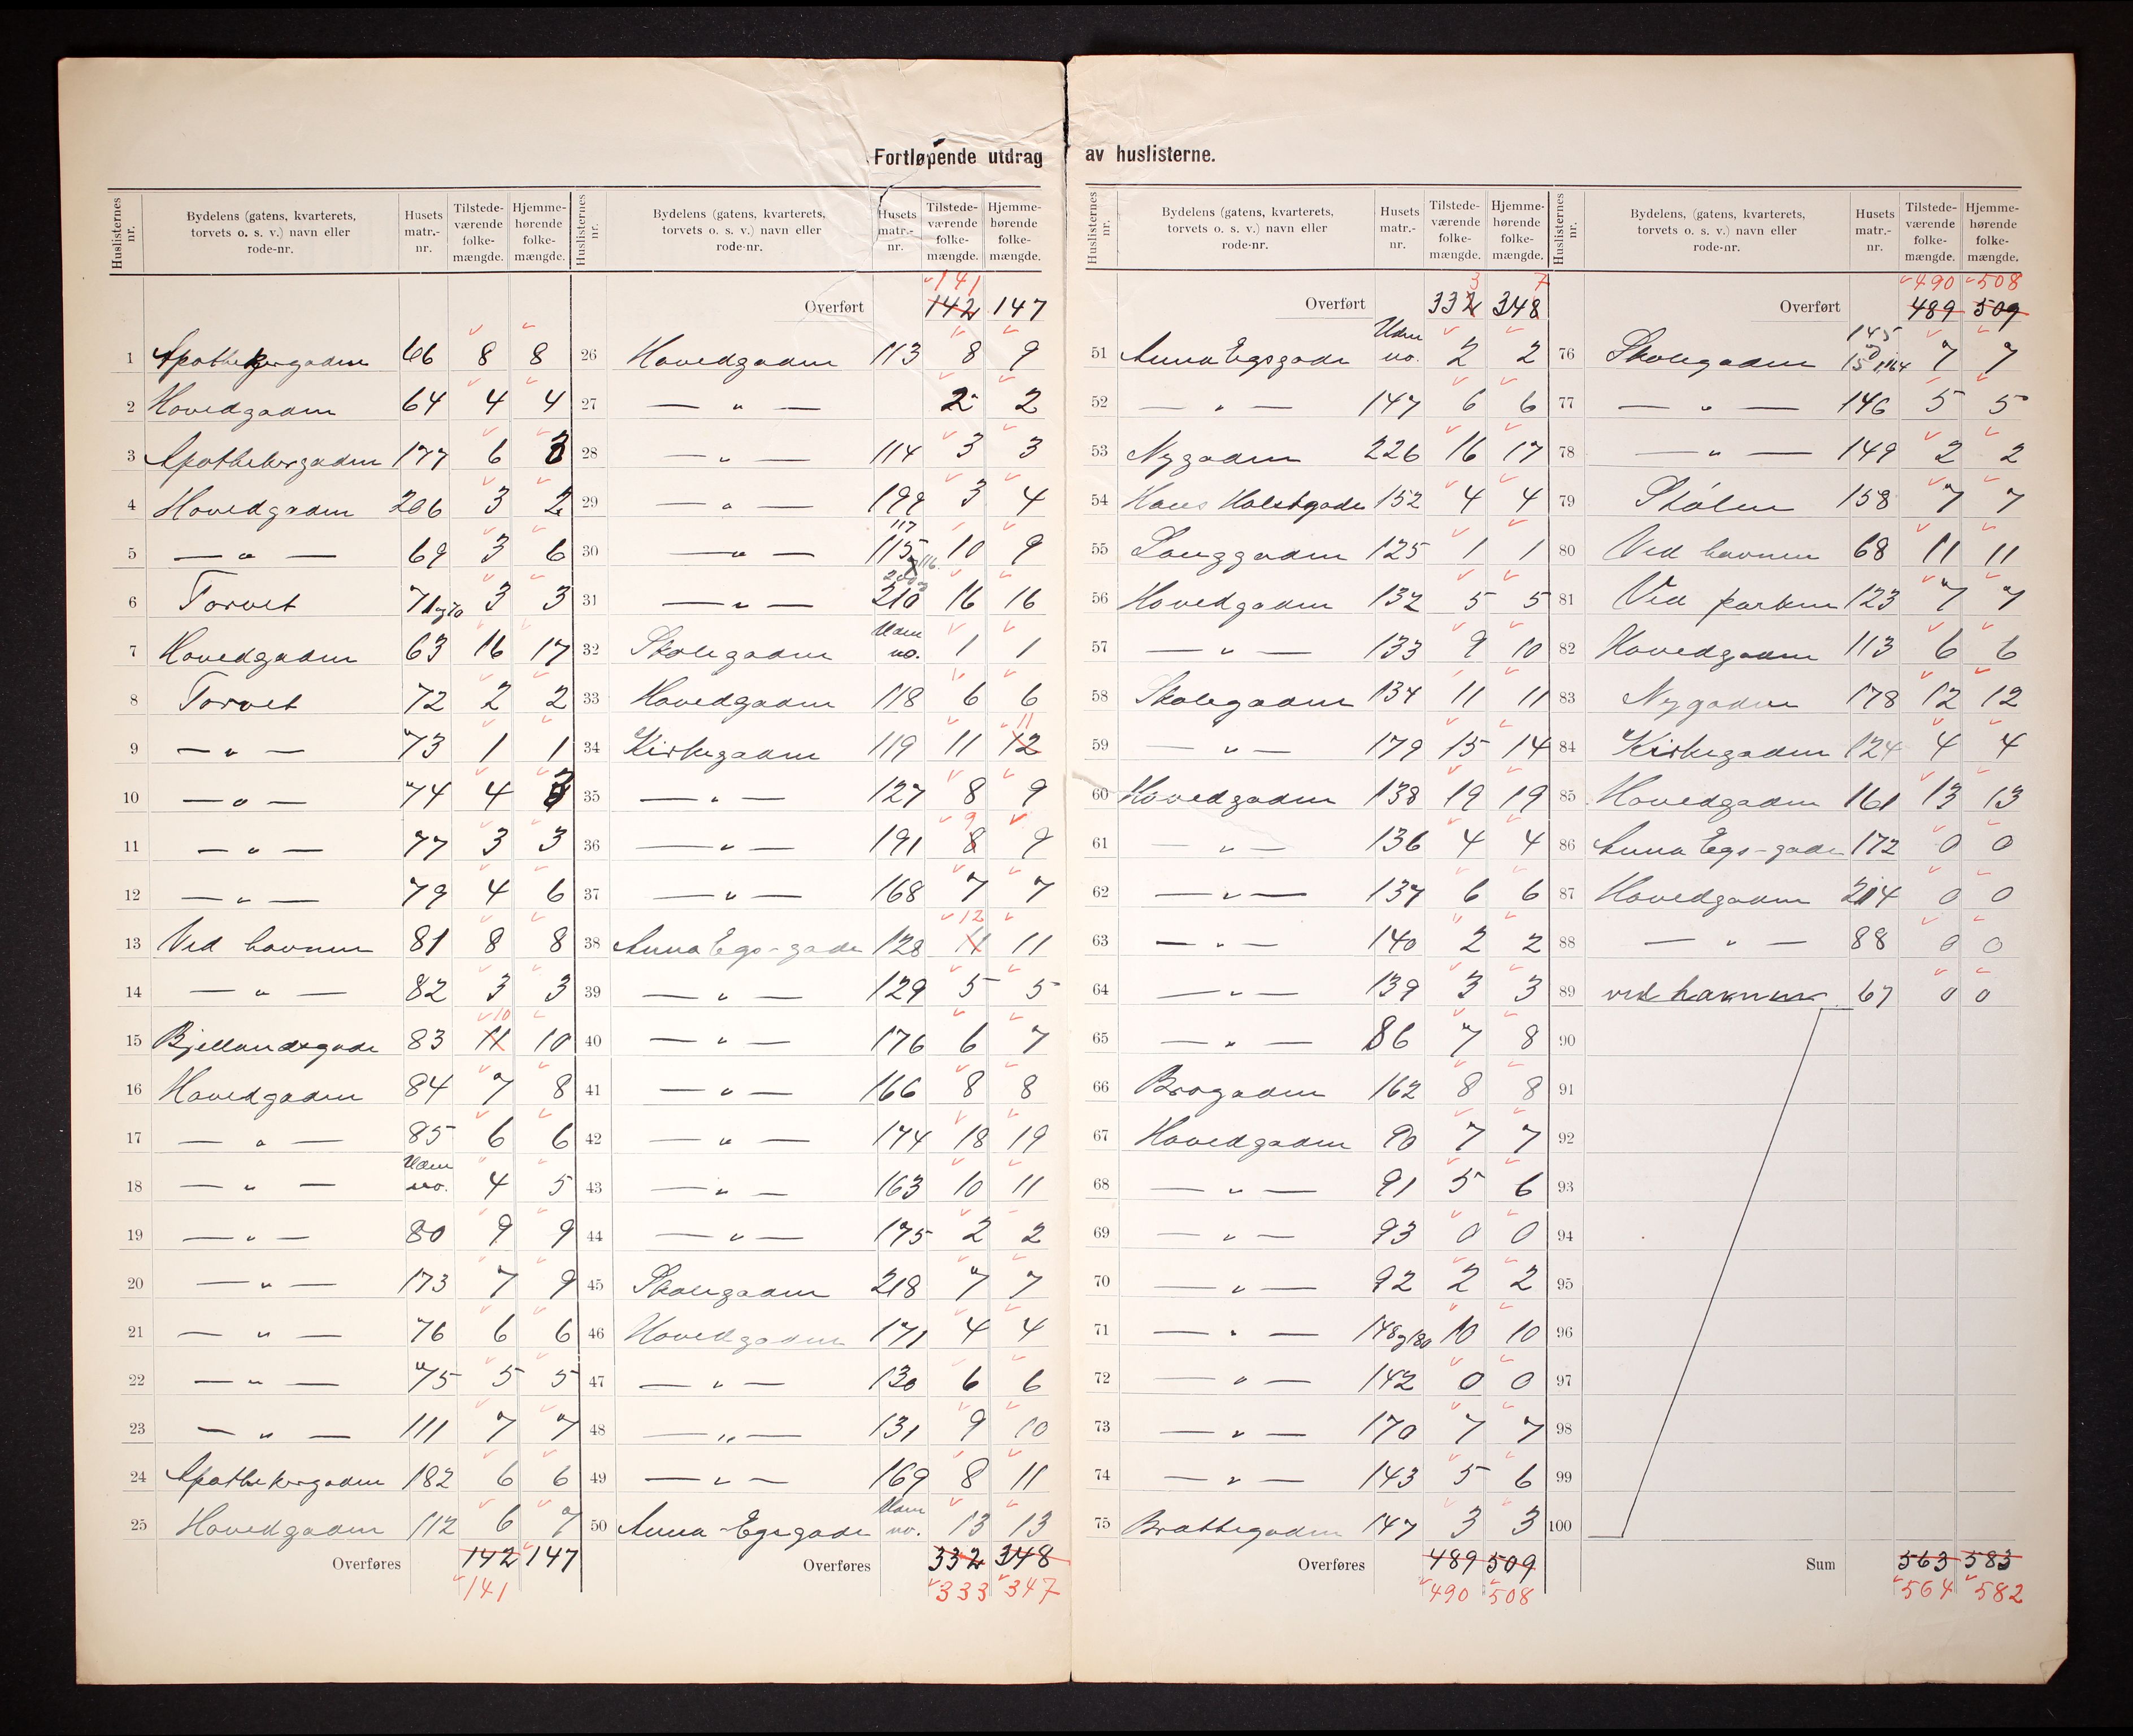 Fortløpende utdrag av huslisterne.
Huslisternes nr. | Bydelens (gatens, kvarterets, torvets o. s. v.) navn eller rode-nr. | Husets matr.-nr. | Tilstede-værende folke-mængde. | Hjemme-hørende folke-mængde.
1 Apothekergaden 66 8 8
2 Hovedgaden 64 4 4
3 Apothekergaden 177 6 3
4 Hovedgaden 206 3 2
5 — " — 69 3 6
6 Torvet 71 og 70 3 3
7 Hovedgaden 63 16 17
8 Torvet 72 2 2
9 — " — 73 1 1
10 — " — 74 4 3
11 — " — 77 3 3
12 — " — 79 4 6
13 Ved havnen 81 8 8
14 — " — 82 3 3
15 Bjellandsgade 83 11 10 10
16 Hovedgaden 84 7 8
17 — " — 85 6 6
18 — " — Uden no. 4 5
19 — " — 80 9 9
20 — " — 173 7 9
21 — " — 76 6 6
22 — " — 75 5 5
23 — " — 111 7 7
24 Apothekergaden 182 6 6
25 Hovedgaden 112 6 7
Overføres 142 147
141
Huslisternes nr. | Bydelens (gatens, kvarterets, torvets o. s. v.) navn eller rode-nr. | Husets matr.-nr. | Tilstede-værende folke-mængde. | Hjemme-hørende folke-mængde.
141
Overført 142 147
26 Hovedgaden 113 8 9
27 — " — 2 2
28 — " — 114 3 3
29 — " — 199 3 4
30 — " — 117 115 og 116 10 9
31 — " — 209 og 210 16 16
32 Skolegaden Uden no. 1 1
33 Hovedgaden 118 6 6
34 Kirkegaden 119 11 12 11
35 — " — 127 8 9
36 — " — 191 8 9 9
37 — " — 168 7 7
38 Anna Egs-gade 128 11 12 11
39 — " — 129 5 5
40 — " — 176 6 7
41 — " — 166 8 8
42 — " — 174 18 19
43 — " — 163 10 11
44 — " — 175 2 2
45 Skolegaden 218 7 7
46 Hovedgaden 171 4 4
47 — " — 130 6 6
48 — " — 131 9 10
49 — " — 169 8 11
50 Anna-Egsgade Uden no. 13 13
Overføres 332 348
333 347
Huslisternes nr. | Bydelens (gatens, kvarterets, torvets o. s. v.) navn eller rode-nr. | Husets matr.-nr. | Tilstede-værende folke-mængde. | Hjemme-hørende folke-mængde.
3 7
Overført 332 348
51 Anna Egsgade Uden no. 2 2
52 — " — 147 6 6
53 Nygaden 226 16 17
54 Hans Holstgade 152 4 4
55 Langgaden 125 1 1
56 Hovedgaden 132 5 5
57 — " — 133 9 10
58 Skolegaden 134 11 11
59 — " — 179 15 14
60 Hovedgaden 138 19 19
61 — " — 136 4 4
62 — " — 137 6 6
63 — " — 140 2 2
64 — " — 139 3 3
65 — " — 86 7 8
66 Brogaden 162 8 8
67 Hovedgaden 90 7 7
68 — " — 91 5 6
69 — " — 93 0 0
70 — " — 92 2 2
71 — " — 148 og 180 10 10
72 — " — 142 0 0
73 — " — 170 7 7
74 — " — 143 5 6
75 Brattegaden 147 3 3
Overføres 489 509
490 508
Huslisternes nr. | Bydelens (gatens, kvarterets, torvets o. s. v.) navn eller rode-nr. | Husets matr.-nr. | Tilstede-værende folke-mængde. | Hjemme-hørende folke-mængde.
490 508
Overført 489 509
76 Skolegaden 145 7 7
77 — " — 146 5 5
78 — " — 149 2 2
79 Skolen 158 7 7
80 Ved havnen 68 11 11
81 Ved parken 123 7 7
82 Hovedgaden 113 6 6
83 Nygaden 178 12 12
84 Kirkegaden 124 4 4
85 Hovedgaden 161 13 13
86 Anna Egs-gade 172 0 0
87 Hovedgaden 214 0 0
88 — " — 88 0 0
89 ved havnen 67 0 0
90
91
92
93
94
95
96
97
98
99
100
Sum 563 583
564 582